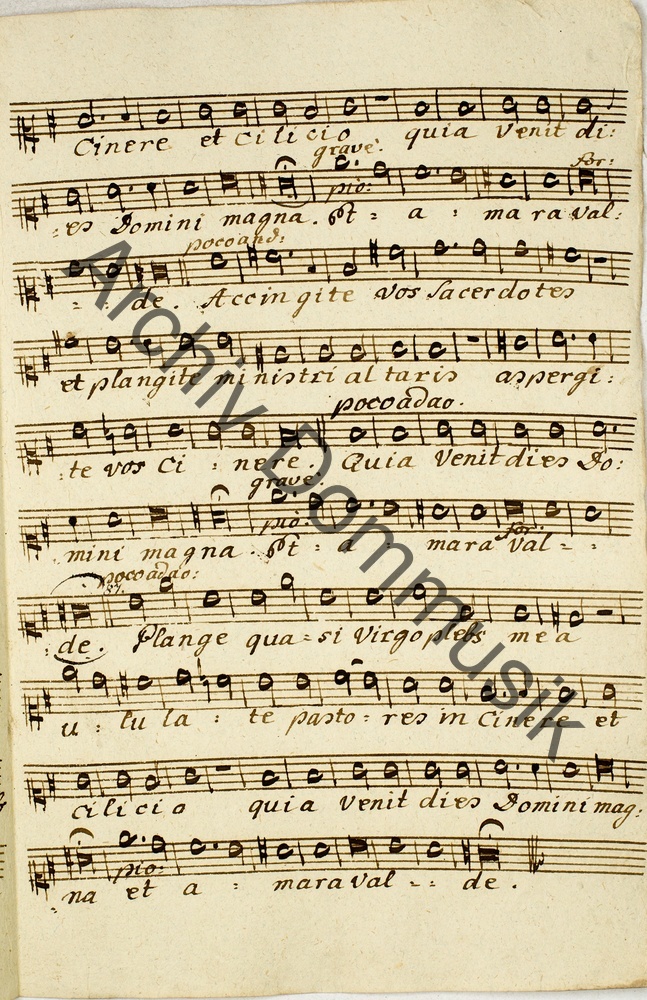 Cinere et Cilicio quia Venit di:
grave:
pio: for:
:es Domini magna. Et : a : mara Val:
poco and:
: : de. Accingite vos Sacerdotes
et plangite ministri altaris aspergi:
poco adao.
:te vos Ci : nere. Quia Venit dies Do:
grave:
pio: for:
mini magna. Et : a : mara Val : :
poco adao:
de. Plange qua = si Virgo plebs mea
u : lula : te pasto : res in Cinere et
Cilicio quia Venit dies Domini mag:
pio:
:na et a : mara Val : : de.
Archiv Dommusik